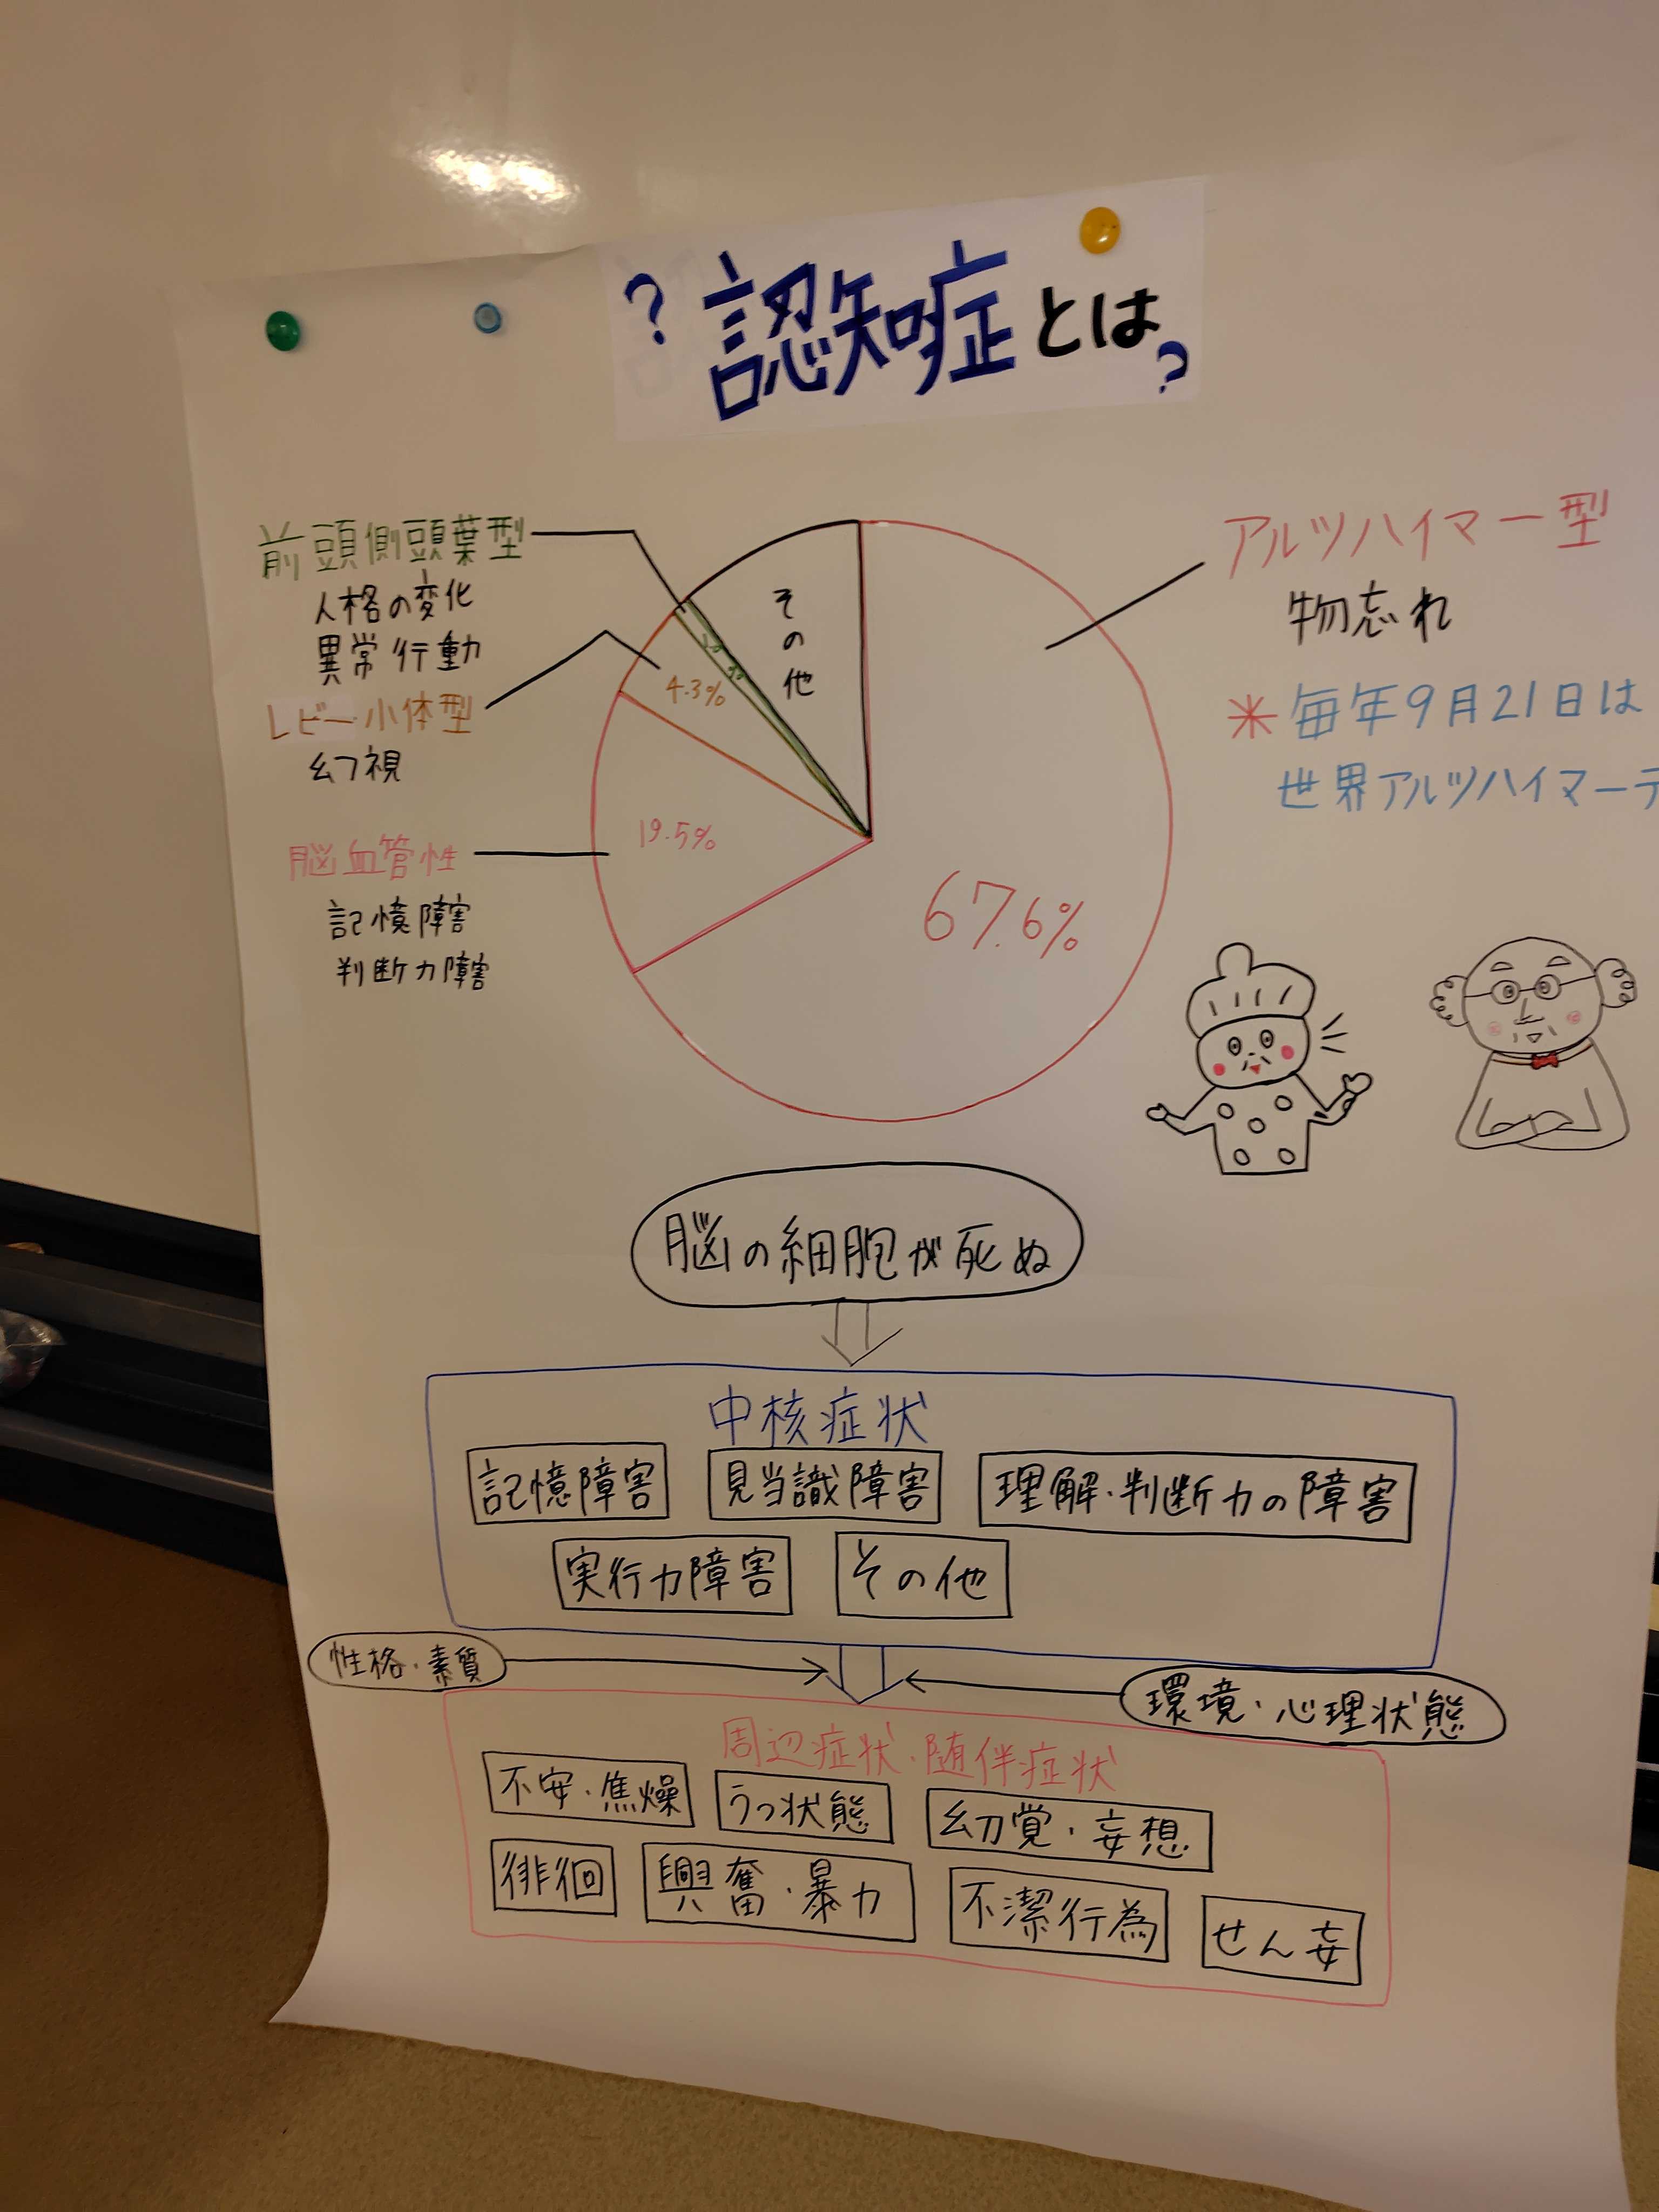 ? 認知症とは ?
前頭側頭葉型
人格の変化
異常行動
レビー小体型
幻視
脳血管性
記憶障害
判断力障害
その他
4.3%
19.5%
67.6%
アルツハイマー型
物忘れ
* 毎年9月21日は
世界アルツハイマーデ
脳の細胞が死ぬ
中核症状
記憶障害 見当識障害 理解・判断力の障害
実行力障害 その他
性格・素質
環境・心理状態
周辺症状・随伴症状
不安・焦燥 うつ状態 幻覚・妄想
徘徊 興奮・暴力 不潔行為 せん妄